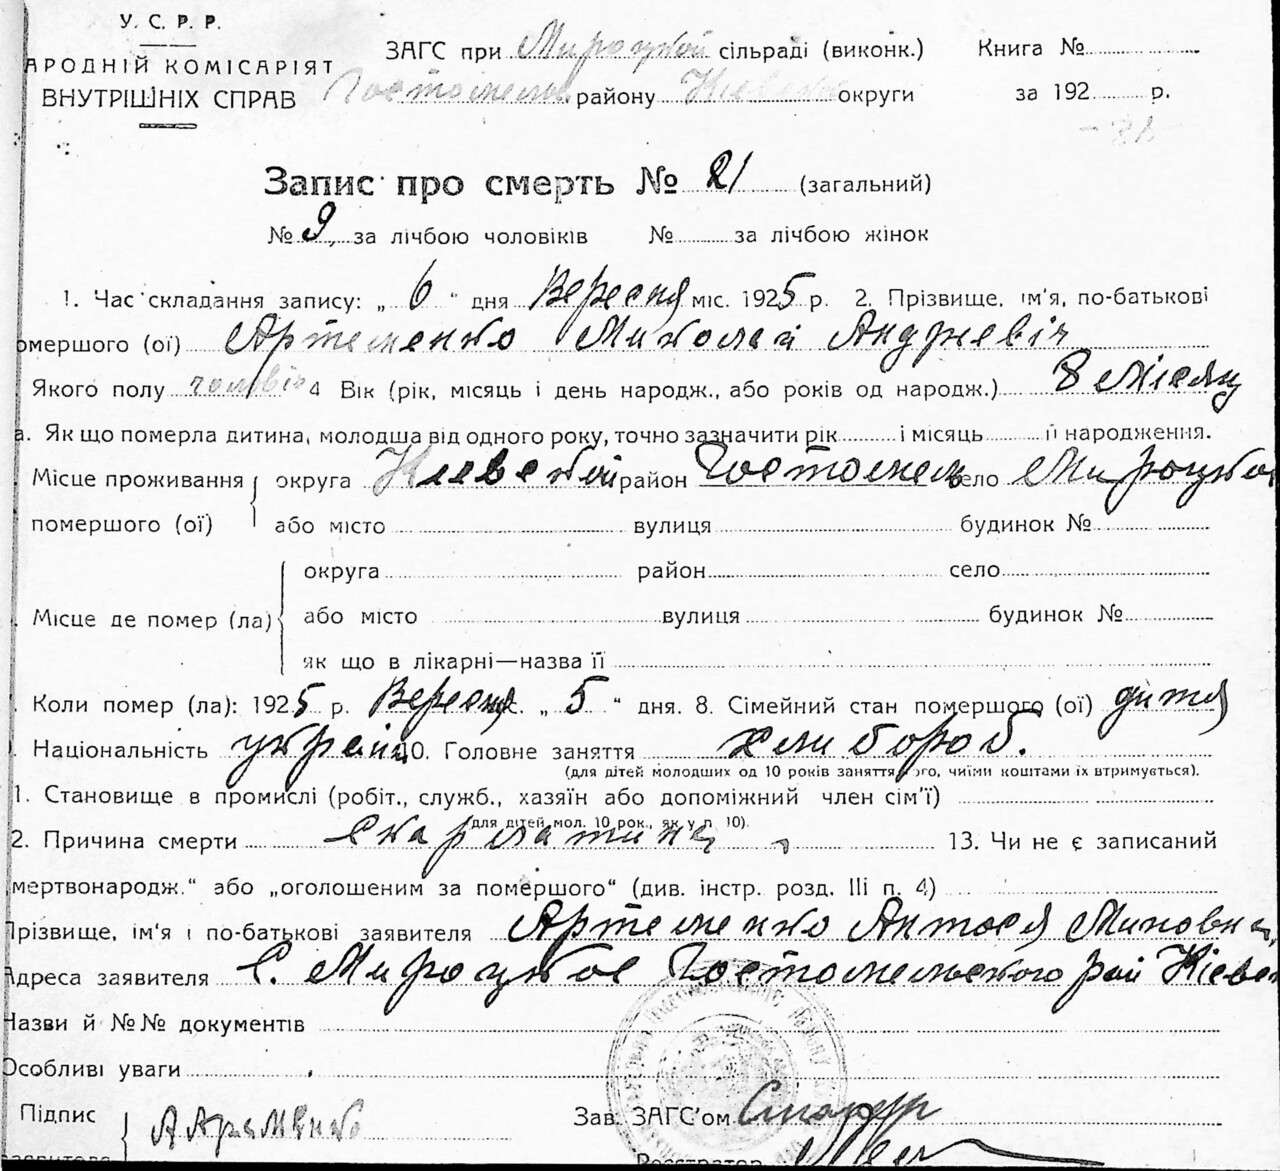 У. С. Р. Р.
АРОДНІЙ КОМІСАРІЯТ
ВНУТРІШНІХ СПРАВ
ЗАГС при Мироцкой сільраді (виконк.) Книга №
Гостомель району Кіевск округи за 192 р.
Запис про смерть № 21 (загальний)
№ 9, за лічбою чоловіків № за лічбою жінок
1. Час складання запису: „ 6 " дня Вересня міс. 1925 р. 2. Прізвище, ім'я, по-батькові
омершого (ої) Артеменко Миколай Андреевіч
Якого полу чоловіч 4 Вік (рік, місяць і день народж., або років од народж.) 8 місяц
а. Як що померла дитина, молодша від одного року, точно зазначити рік і місяць її народження.
Місце проживання округа Киевской район Гостомель село Мироцкое
помершого (ої) або місто вулиця будинок №
округа район село
Місце де помер (ла) або місто вулиця будинок №
як що в лікарні—назва її
Коли помер (ла): 1925 р. Вересня с. „ 5 " дня. 8. Сімейний стан помершого (ої) дитя
Національність україн 10. Головне заняття хлибороб.
(для дітей молодших од 10 років заняття ого, чиїми коштами їх втримується).
1. Становище в промислі (робіт., служб., хазяїн або допоміжний член сім'ї)
для дітей мол. 10 рок., як у п. 10).
2. Причина смерти Скарлатина 13. Чи не є записаний
„мертвонародж." або „оголошеним за помершого" (див. інстр. розд. III п. 4)
Прізвище, ім'я і по-батькові заявителя Артеменко Антося
Адреса заявителя С. Мироцкое Гостомельского рай Кіевс
Назви й №№ документів
Особливі уваги
Підпис Зав. ЗАГС'ом
заявителя Реєстратор